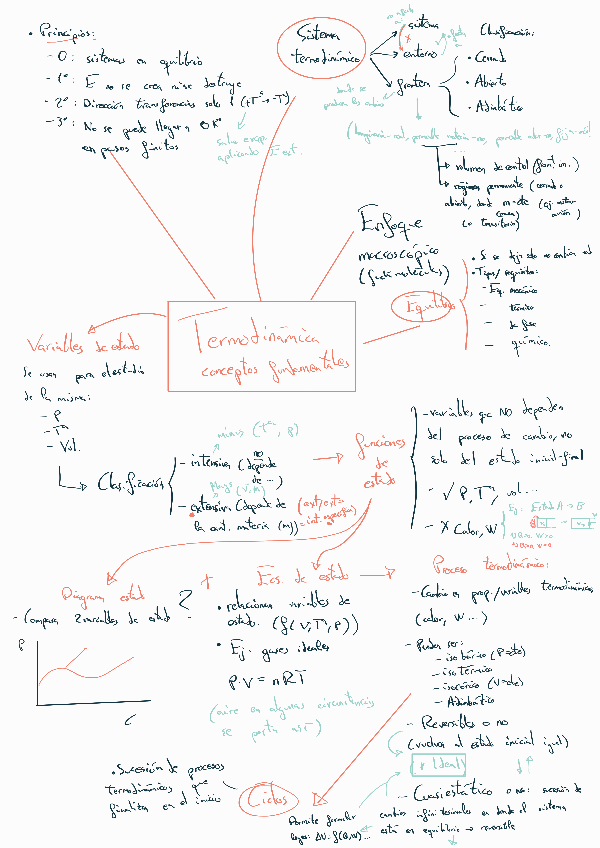 • Principios:
- 0: sistemas en equilibrio
- 1º: E no se crea ni se destruye
- 2º: Dirección transferencias solo 1 (+Tº → -Tº)
- 3º: No se puede llegar a 0Kº
en pasos finitos
salvo
aplicando
Sistema
termodinámico
sistema
entorno
frontera
Clasificación:
• Cerrado
• Abierto
• Adiabático
donde se
→ volumen de control
→ régimen permanente
abierto, donde
(o transitorio)
Enfoque
macroscópico
Equilibrio
• Tipos/requisitos:
- Eq. mecánico
- térmico
- de fase
- químico.
Termodinámica
conceptos fundamentales
Variables de estado
Se usan para el estudio
de la misma:
- P
- Tª
- Vol.
→ Clasificación
minus (Tª, P)
- intensiva (no
depende
de ...)
- extensiva (depende de
la cant. materia (m))
(ext/ext=
= int. específica)
funciones
de
estado
- variables que NO dependen
del proceso de cambio, no
solo del estado inicial-final
- √ P, Tª, vol...
- X Calor, W
Ej: Estado A → B
Diagrama estado
- Compara 2 variables de estado
P
+
Ecs. de estado
• relacionan variables de
estado. (f(V, Tª, P))
• Ej. gases ideales
P·V = nRT
(aire en algunas circunstancias
se porta así)
Proceso termodinámico:
- Cambio en prop./variables termodinámicas
(calor, W...)
- Pueden ser:
- isobárico (P=cte)
- isotérmico
- isocórico (V=cte)
- Adiabático
- Reversibles o no
(vuelven al estado inicial igual)
(Ideal)
- Cuasiestático o no: sucesión de
cambios infinitesimales en donde el sistema
está en equilibrio → reversible
Permite formular
leyes: ΔU = f(Q, W)...
Ciclos
• Sucesión de procesos
termodinámicos que
finaliza en el inicio